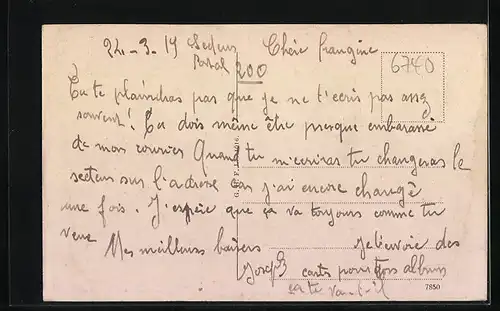 24-3-19 Secteur Chère frangine
Postal 200
6740
Tu te plaindras pas que je ne t'ecris pas assez
souvent! Tu dois même être presque embarassé
de mon courrier Quand tu m'ecriras tu changeras le
secteur sur l'adresse car j'ai encore changé
une fois. J'espère que ça va toujours comme tu
veux Mes meilleurs baisers Je t'envoie des
Joseph cartes pour tes albums
ça te va-t-il
7850